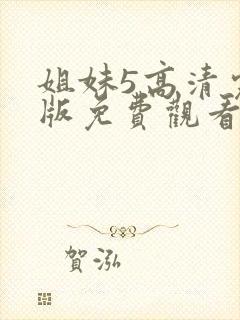 姐妹5高清
版免費觀看
賀泓